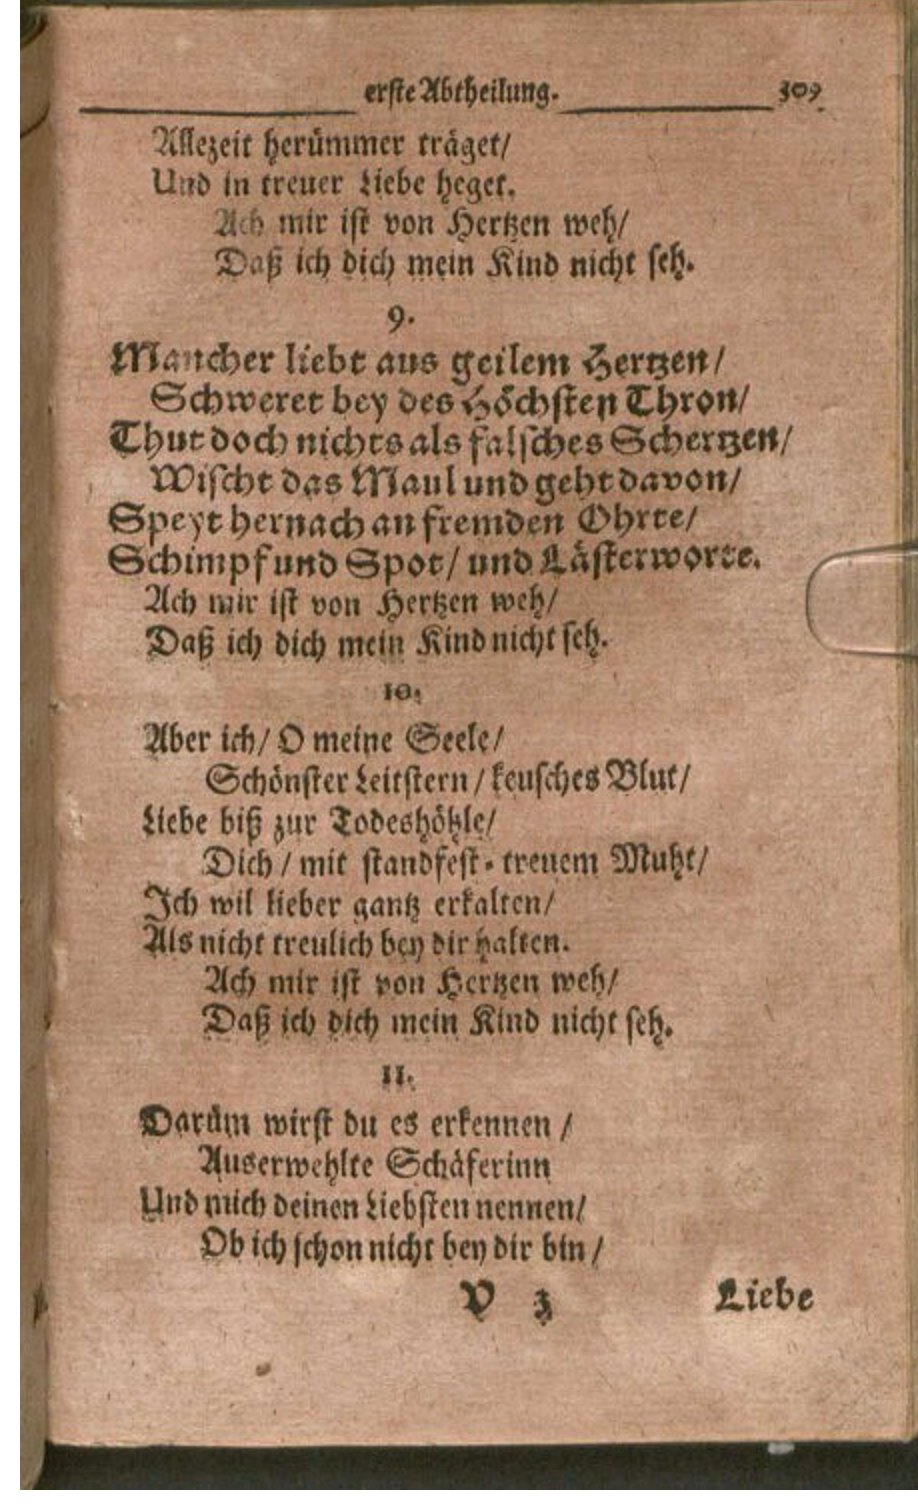 erste Abtheilung. 309
Allezeit herümmer träget/
Und in treuer Liebe heget.
Ach mir ist von Hertzen weh/
Daß ich dich mein Kind nicht seh.
9.
Mancher liebt aus geilem Hertzen/
Schweret bey des Höchsten Thron/
Thut doch nichts als falsches Schertzen/
Wischt das Maul und geht davon/
Speyt hernach an fremden Ohrte/
Schimpf und Spot/ und Lästerworte.
Ach mir ist von Hertzen weh/
Daß ich dich mein Kind nicht seh.
10.
Aber ich/ O meine Seele/
Schönster Leitstern/ keusches Blut/
Liebe biß zur Todeshöhle/
Dich/ mit standfest-treuem Muht/
Ich wil lieber gantz erkalten/
Als nicht treulich bey dir halten.
Ach mir ist von Hertzen weh/
Daß ich dich mein Kind nicht seh.
11.
Darüm wirst du es erkennen/
Auserwehlte Schäferinn
Und mich deinen Liebsten nennen/
Ob ich schon nicht bey dir bin/
V 3 Liebe